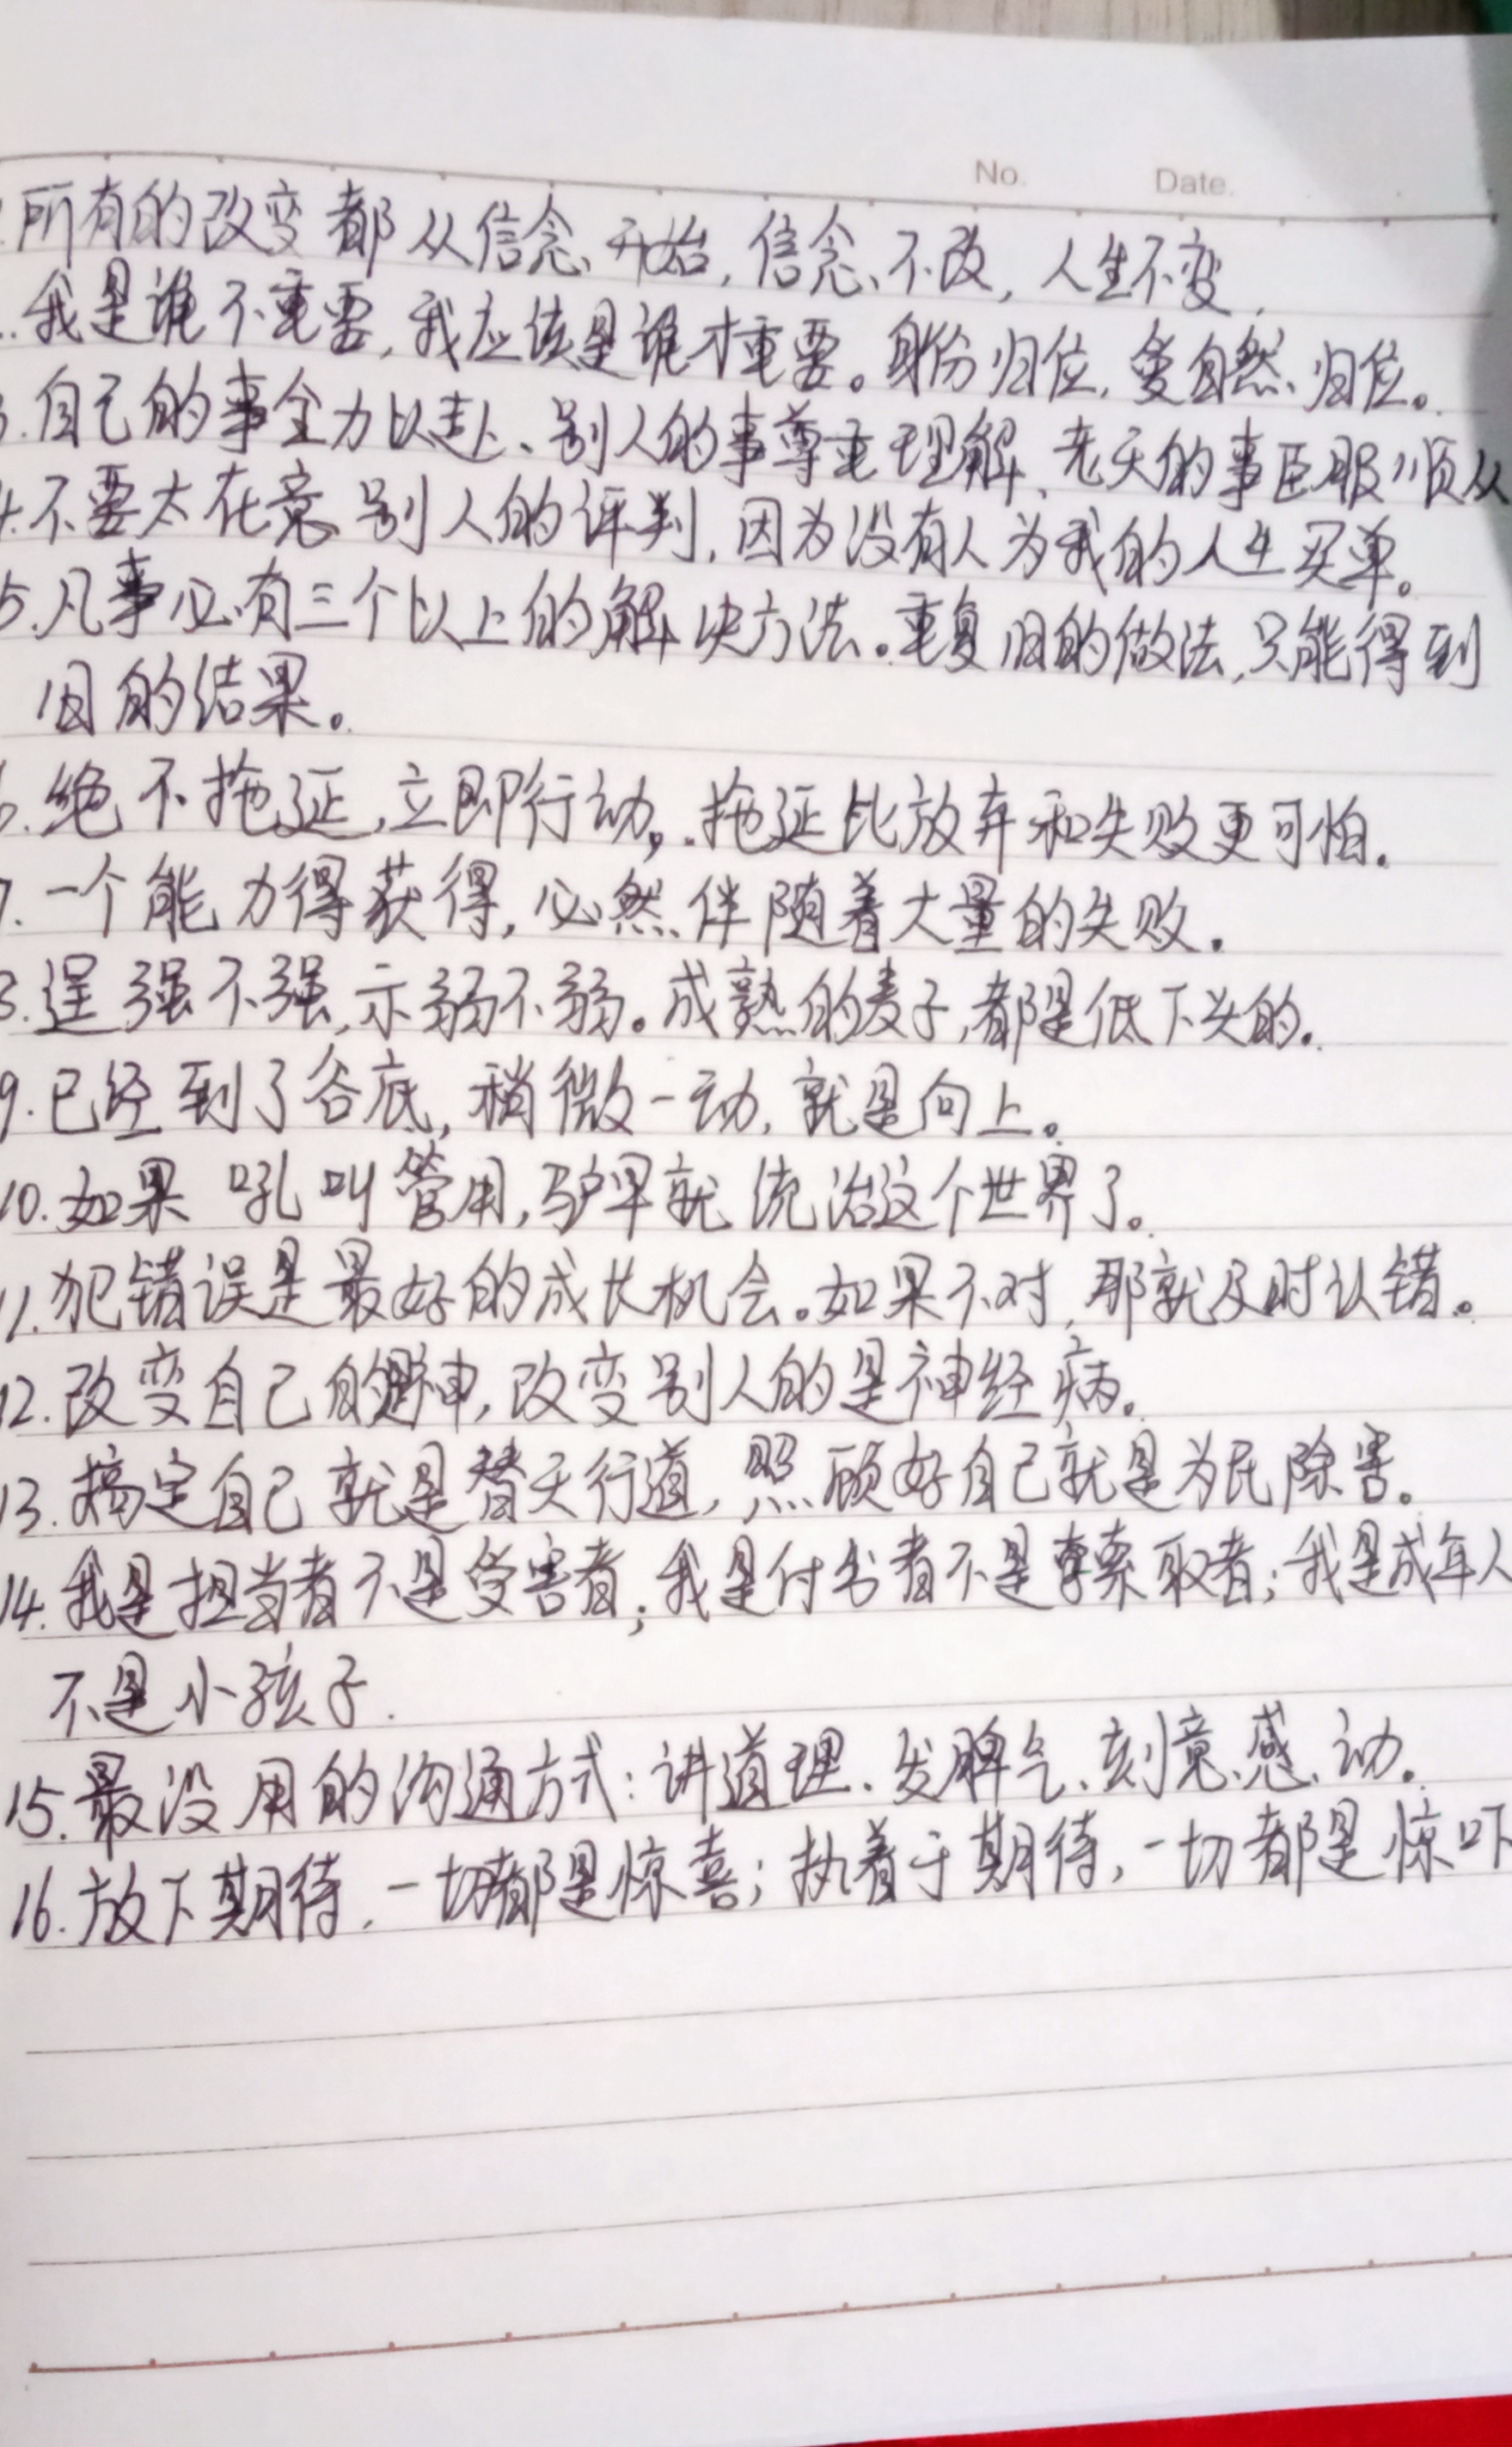 No. Date.
.所有的改变都从信念开始,信念不改,人生不变.
.我是谁不重要,我应该是谁才重要。身份归位,爱自然归位。
3.自己的事全力以赴、别人的事尊重理解、老天的事臣服顺从
4.不要太在意别人的评判,因为没有人为我的人生买单。
5.凡事必有三个以上的解决方法。重复旧的做法,只能得到
旧的结果。
6.绝不拖延,立即行动,.拖延比放弃和失败更可怕.
7.一个能力得获得,必然伴随着大量的失败.
8.逞强不强,示弱不弱。成熟的麦子,都是低下头的.
9.已经到了谷底,稍微一动,就是向上。
10.如果吼叫管用,驴早就统治这个世界了。
11.犯错误是最好的成长机会。如果不对,那就及时认错。
12.改变自己的是神,改变别人的是神经病。
13.搞定自己就是替天行道,照顾好自己就是为民除害。
14.我是担当者不是受害者;我是付出者不是索取者;我是成年人
不是小孩子.
15.最没用的沟通方式:讲道理、发脾气、刻意感动.
16.放下期待,一切都是惊喜;执着于期待,一切都是惊吓